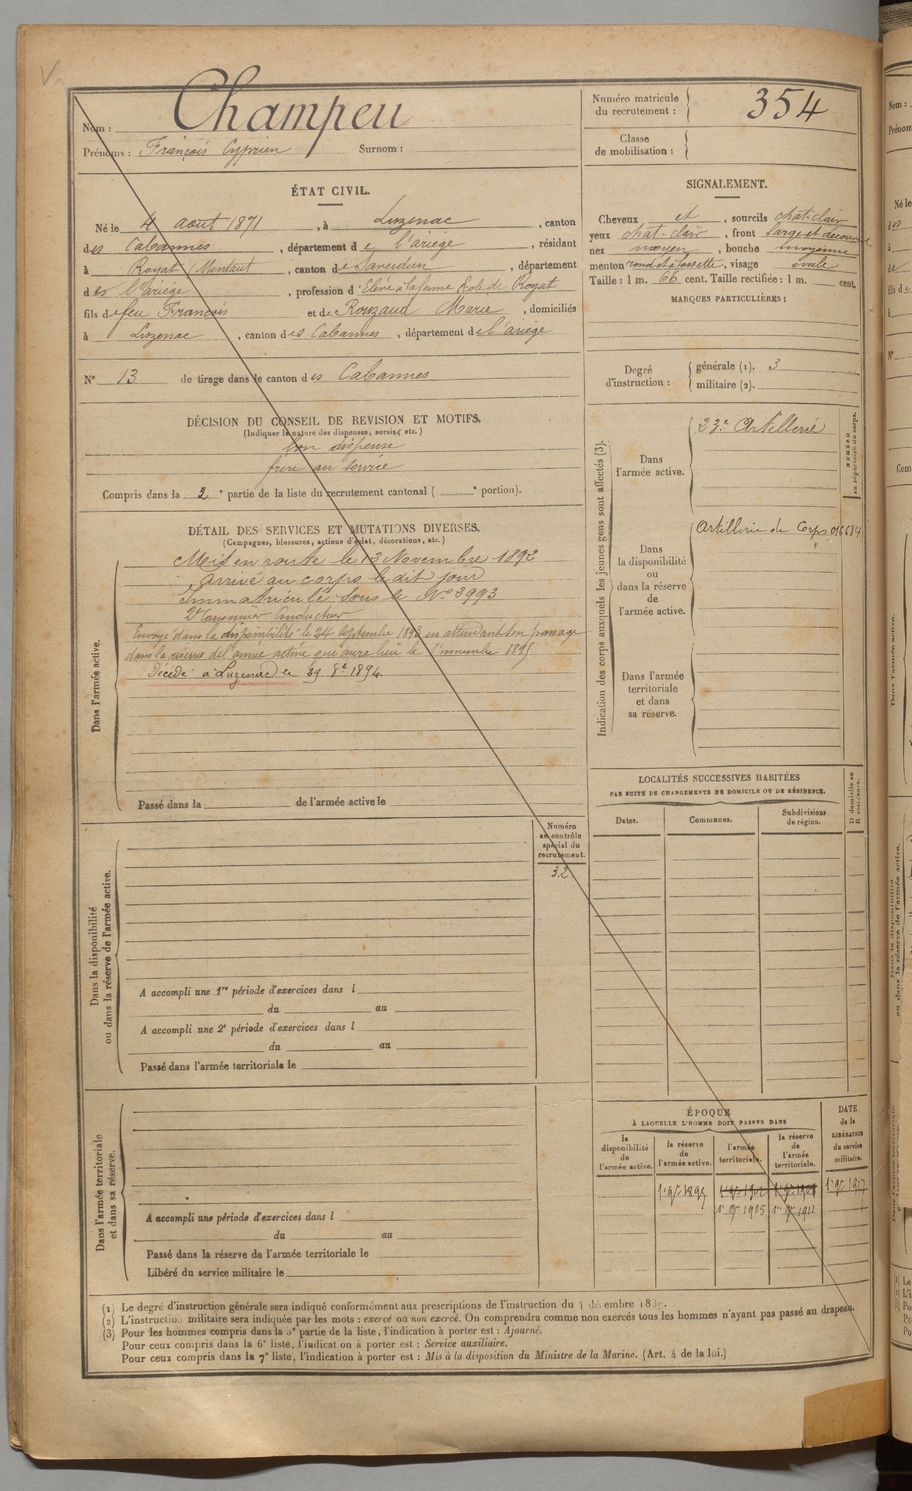 Nom : Champeu
Prénoms : François Cyprien Surnom :
Numéro matricule du recrutement : 354
Classe de mobilisation :
ÉTAT CIVIL.
Né le 4 août 1871, à Luzenac, canton
des Cabannes, département de l'ariège, résidant
à Royat (Montaut, canton de Saverdun, département
de l'ariège, profession d'Elève à la ferme Ecole de Royat
fils de feu François et de Rouzaud Marie, domiciliés
à Luzenac, canton des Cabannes, département de l'ariège
N° 13 de tirage dans le canton des Cabannes
DÉCISION DU CONSEIL DE REVISION ET MOTIFS.
(Indiquer la nature des dispenses, sursis, etc.)
bon dispensé
frère au service
Compris dans la 2e partie de la liste du recrutement cantonal ( e portion).
DÉTAIL DES SERVICES ET MUTATIONS DIVERSES.
(Campagnes, blessures, actions d'éclat, décorations, etc.)
Dans l'armée active.
Mis en route le 12 Novembre 1892
Arrivé au corps le dit jour
Immatriculé sous le N° 3993
2e Canonnier Conducteur
Envoyé dans la disponibilité le 24 septembre 1893 en attendant son passage
dans la réserve de l'armée active qui aura lieu le 1 novembre 1895
Décédé à Luzenac le 29 8e 1894
Passé dans la de l'armée active le
Numéro au contrôle spécial du recrutement.
32
Dans la disponibilité ou dans la réserve de l'armée active.
A accompli une 1re période d'exercices dans l
du au
A accompli une 2e période d'exercices dans l
du au
Passé dans l'armée territoriale le
Dans l'armée territoriale et dans sa réserve.
A accompli une période d'exercices dans l
du au
Passé dans la réserve de l'armée territoriale le
Libéré du service militaire le
SIGNALEMENT.
Cheveux et, sourcils chat-clair
yeux chat-clair, front large et découvert
nez moyen, bouche moyenne
menton rond et à fossette, visage ovale
Taille : 1 m. 66 cent. Taille rectifiée : 1 m. cent.
MARQUES PARTICULIÈRES :
Degré d'instruction :
générale (1). 3
militaire (2).
Indication des corps auxquels les jeunes gens sont affectés (3).
NUMÉRO au répertoire du corps.
Dans l'armée active.
23e Artillerie
Dans la disponibilité ou dans la réserve de l'armée active.
Artillerie de Corps 016684
Dans l'armée territoriale et dans sa réserve.
LOCALITÉS SUCCESSIVES HABITÉES
PAR SUITE DE CHANGEMENTS DE DOMICILE OU DE RÉSIDENCE.
Dates. Communes. Subdivisions de région. D domicile ou R résidence.
ÉPOQUE
À LAQUELLE L'HOMME DOIT PASSER DANS
DATE de la LIBÉRATION du service militaire.
la disponibilité de l'armée active. la réserve de l'armée active. l'armée territoriale. la réserve de l'armée territoriale.
1er 9e 1895
1er 9e 1905 1er 9e 1911
1er 9e 1917
(1) Le degré d'instruction générale sera indiqué conformément aux prescriptions de l'instruction du 4 décembre
(2) L'instruction militaire sera indiquée par les mots : exercé ou non exercé. On comprendra comme non exercés tous les hommes n'ayant pas passé au drapeau.
(3) Pour les hommes compris dans la 5e partie de la liste, l'indication à porter est : Ajourné.
Pour ceux compris dans la 6e liste, l'indication à porter est : Service auxiliaire.
Pour ceux compris dans la 7e liste, l'indication à porter est : Mis à la disposition du Ministre de la Marine. (Art. 4 de la loi.)